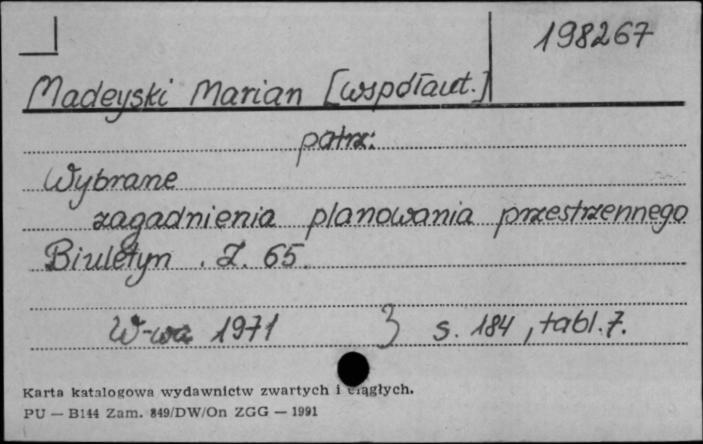 198267
Madeyski Marian [współaut.]
patrz:
Wybrane
zagadnienia planowania przestrzennego
Biuletyn . Z. 65.
W-wa 1971 s. 184, tabl. 7.
Karta katalogowa wydawnictw zwartych i ciągłych.
PU — B144 Zam. 849/DW/On ZGG — 1991